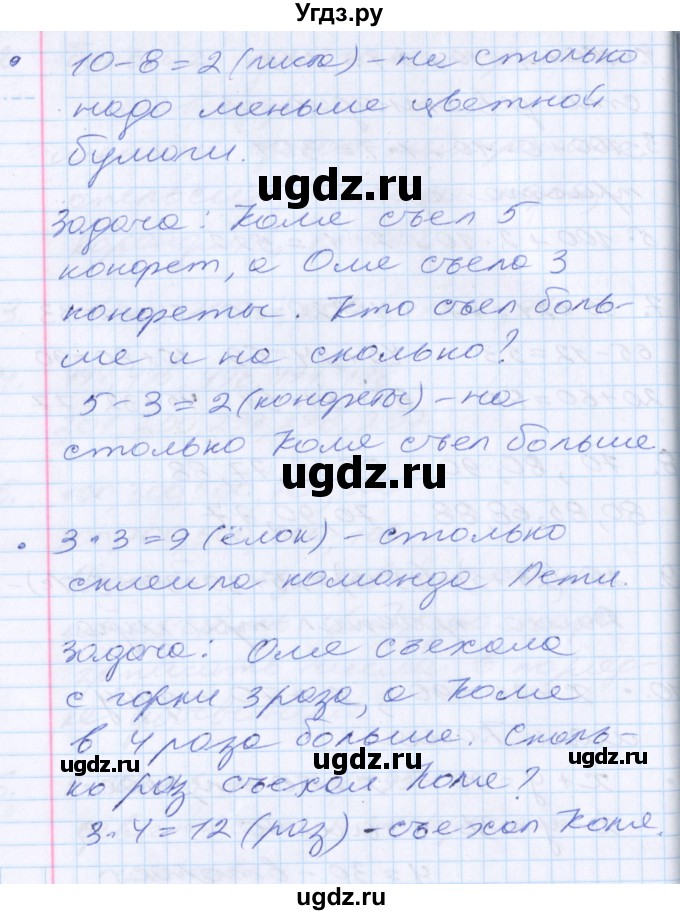 Угдз.ру
10-8=2 (листа) - на столько
надо меньше цветной
бумаги.
ugdz.ru
Задача: Коля съел 5
конфет, а Оля съела 3
конфеты. Кто съел боль-
ше и на сколько?
5-3=2 (конфеты) - на
столько Коля съел больше.
ugdz.ru
3·3=9 (ёлок) - столько
склеила команда Пети.
Задача: Оля съехала
с горки 3 раза, а Коля
в 4 раза больше. Сколь-
ugdz.ru ugdz.ru ugdz.ru
ко раз съехал Коля?
3·4=12 (раз) - съехал Коля.
ugdz.ru